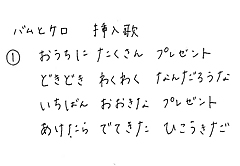 バムとケロ　挿入歌
① おうちに たくさん プレゼント
どきどき わくわく なんだろうな
いちばん おおきな プレゼント
あけたら でてきた ひこうきだ